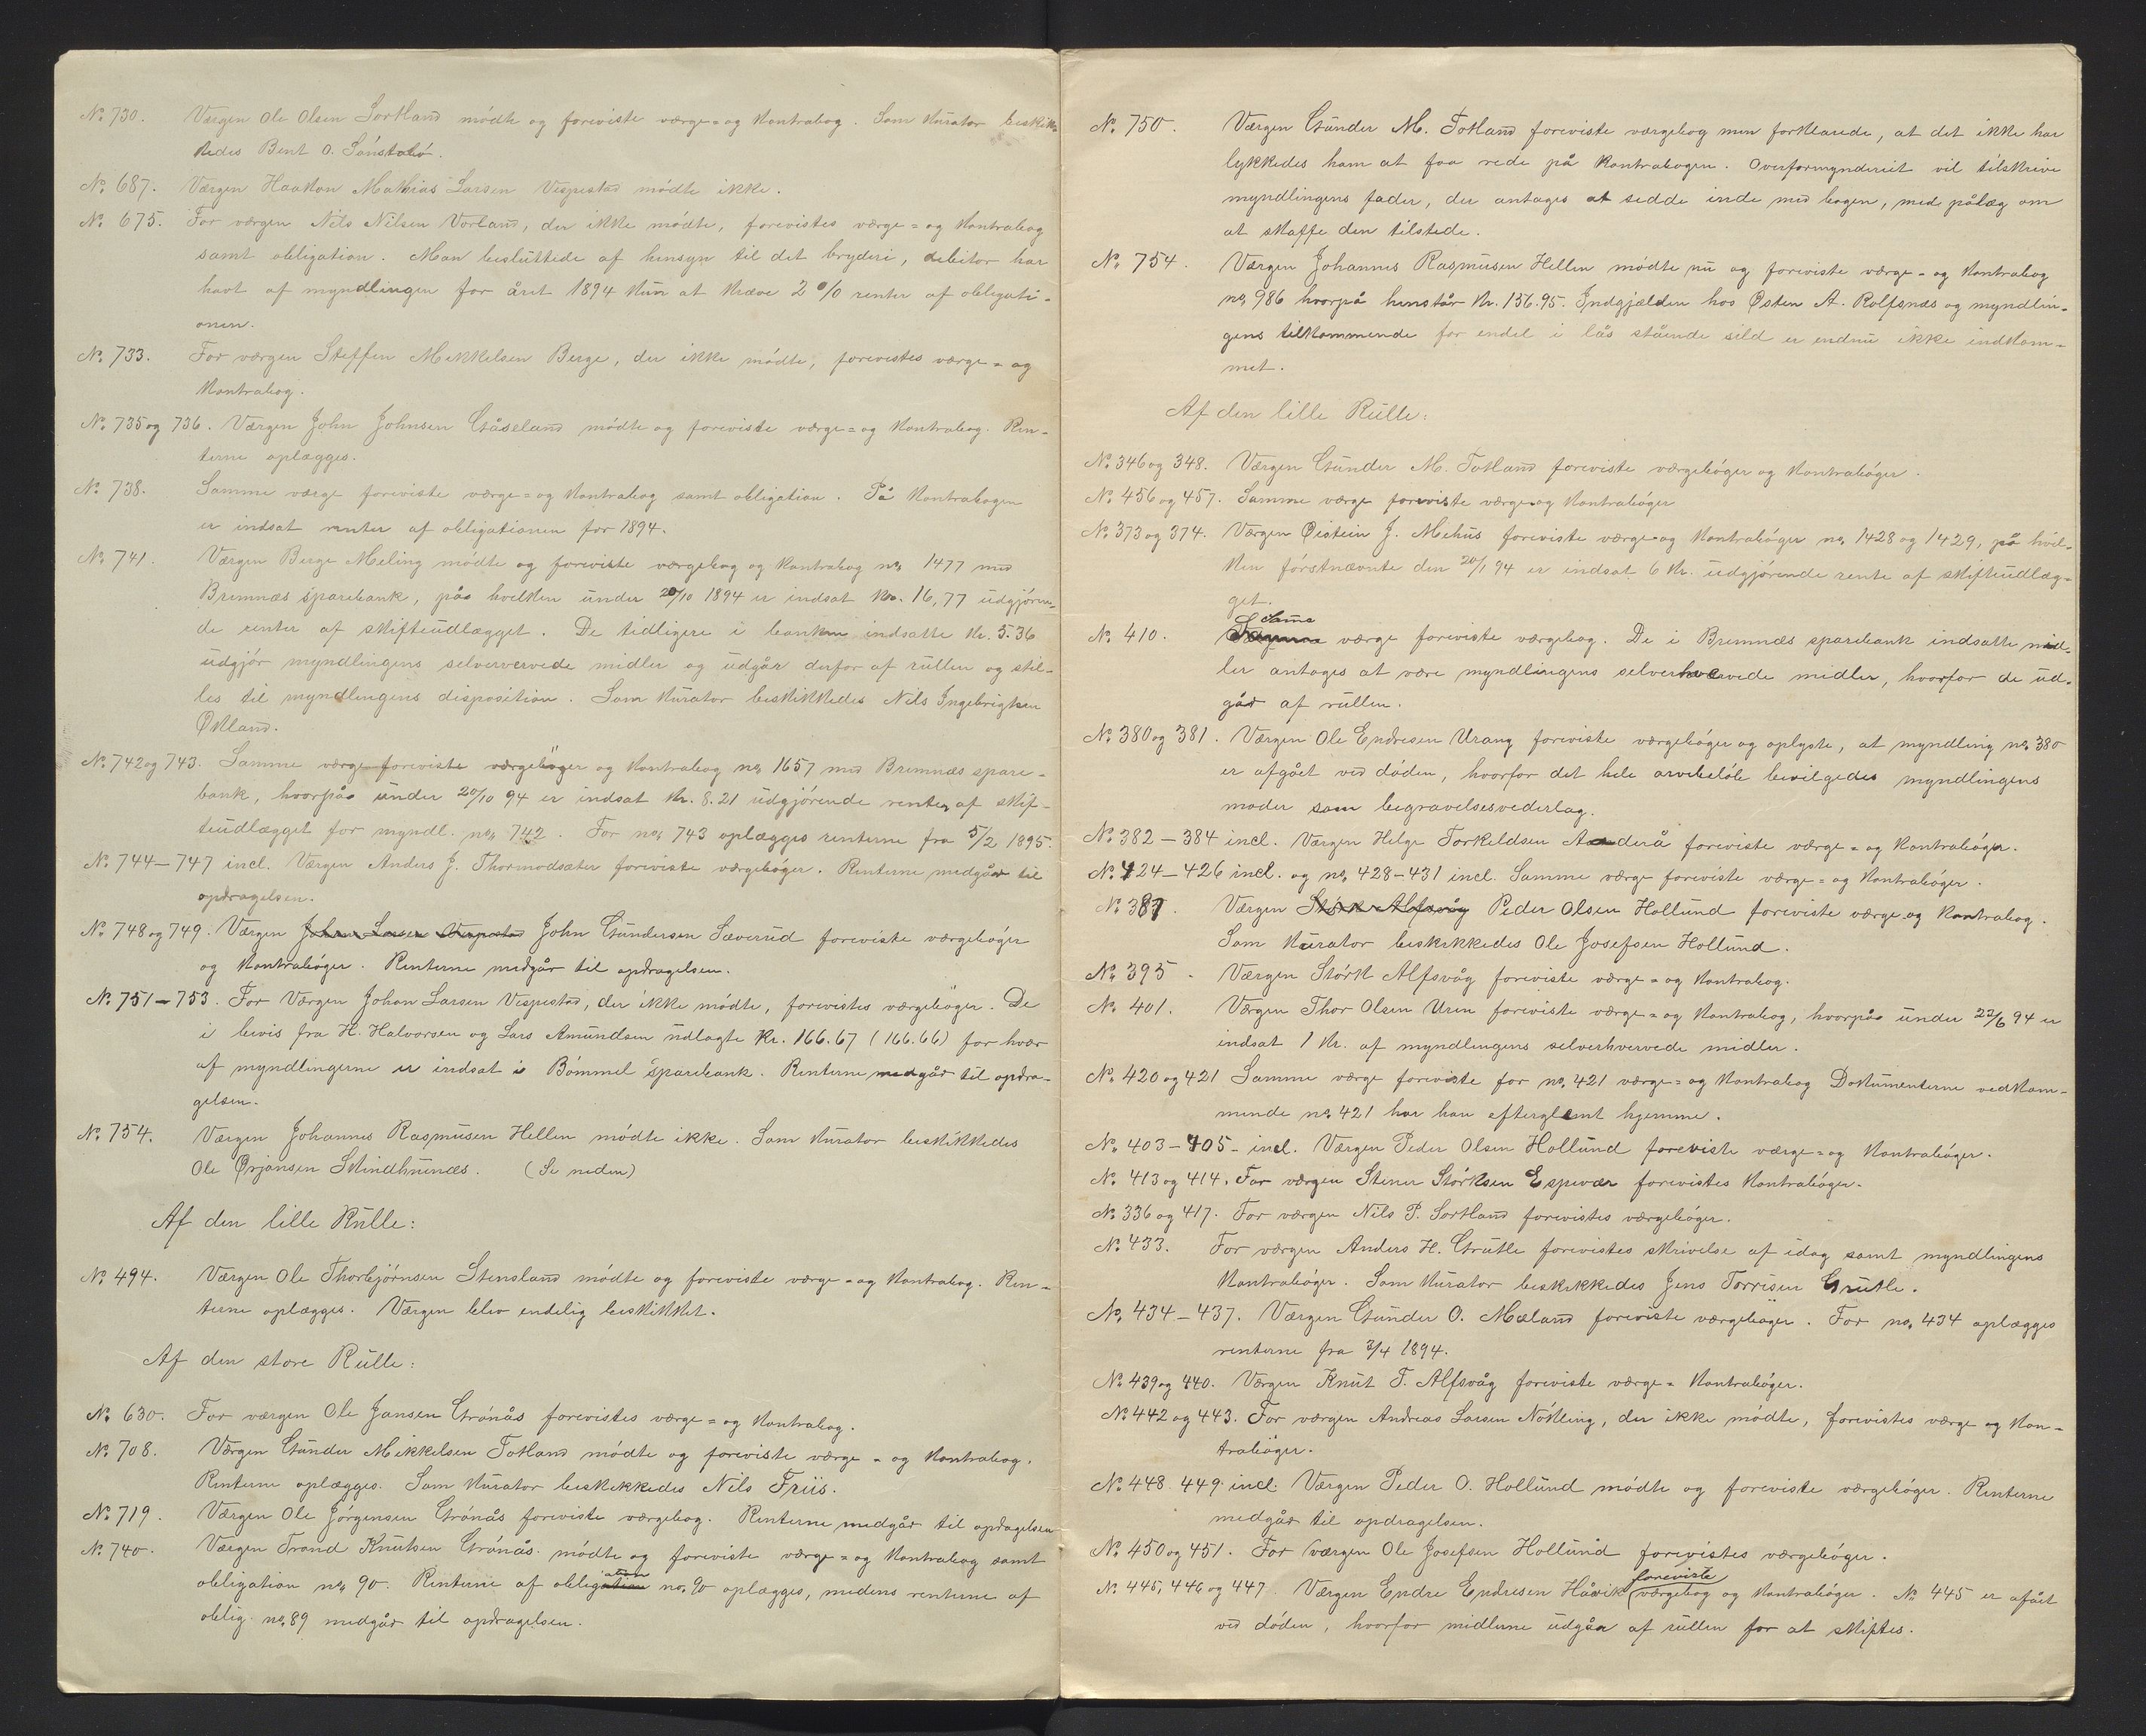 No. 730. Værgen Ole Olsen Sortland mødte og foreviste værge- og Kontrabog. Som Kurator beskik-
kedes Bent O. Sønstabø.
No. 687. Værgen Haakon Mathias Larsen Vespestad mødte ikke.
No. 675. For værgen Nils Nilsen Vorland, der ikke mødte, forevistes værge- og Kontrabog
samt obligation. Man besluttede af hensyn til det bryderi, debitor har
havt af myndlingen for året 1894 kun at kræve 2 % renter af obligati-
onen.
No. 733. For værgen Steffen Mekkelsen Berge, der ikke mødte, forevistes værge- og
Kontrabog.
No. 735 og 736. Værgen John Johnsen Gåseland mødte og foreviste værge- og Kontrabog. Ren-
terne oplægges.
No. 738. Samme værge foreviste værge- og Kontrabog samt obligation. På Kontrabogen
er indsat renter af obligationen for 1894.
No. 741. Værgen Berge Meling mødte og foreviste værgebog og Kontrabog no. 1477 med
Bremnæs sparebank, på hvilken under 20/10 1894 er indsat Kr. 16,77 udgjøren-
de renter af skifteudlægget. De tidligere i banken indsatte Kr. 5.36
udgjør myndlingens selververvede midler og udgår derfor af rullen og stil-
les til myndlingens disposition. Som Kurator beskikkedes Nils Ingebrigtsen
Økland.
No. 742 og 743. Samme værge foreviste værgebøger og Kontrabog no. 1657 med Bremnæs spare-
bank, hvorpå under 20/10 94 er indsat Kr. 8.21 udgjørende renter af skif-
teudlægget for myndl. no. 742. For no. 743 oplægges renterne fra 5/2 1895.
No. 744-747 incl. Værgen Anders J. Thormodsæter foreviste værgebøger. Renterne medgår til
opdragelsen.
No. 748 og 749. Værgen Johan Larsen Vespestad John Gundersen Sæverud foreviste værgebøger
og Kontrabøger. Renterne medgår til opdragelsen.
No. 751-753. For Værgen Johan Larsen Vespestad, der ikke mødte, forevistes værgebøger. De
i bevis fra H. Halvorsen og Lars Amundsen udlagte Kr. 166.67 (166.66) for hver
af myndlingerne er indsat i Bømmel sparebank. Renterne medgår til opdra-
gelsen.
No. 754. Værgen Johannes Rasmusen Hellen mødte ikke. Som Kurator beskikkedes
Ole Ørjansen Skindhunæs. (Se neden)
Af den lille Rulle:
No. 494. Værgen Ole Thorbjørnsen Stensland mødte og foreviste værge- og Kontrabog. Ren-
terne oplægges. Værgen blev endelig beskikket.
Af den store Rulle:
No. 630. For værgen Ole Jansen Grønås forevistes værge- og Kontrabog.
No. 708. Værgen Gunder Mikkelsen Totland mødte og foreviste værge- og Kontrabog.
Renterne oplægges. Som Kurator beskikkedes Nils Friis.
No. 719. Værgen Ole Jørgensen Grønås foreviste værgebog. Renterne medgår til opdragelsen
No. 740. Værgen Trond Knutsen Grønås mødte og foreviste værge- og Kontrabog samt
obligation no. 90. Renterne af obligation no. 90 oplægges, medens renterne af
oblig. no. 89 medgår til opdragelsen.
No. 750. Værgen Gunder M. Totland foreviste værgebog men forklarede, at det ikke har
lykkedes ham at faa rede på kontrabogen. Overformynderiet vil tilskrive
myndlingens fader, der antages at sedde inde med bogen, med pålæg om
at skaffe den tilstede.
No. 754. Værgen Johannes Rasmusen Hellen mødte nu og foreviste værge- og Kontrabog
no. 986 hvorpå henstår Kr. 136.95. Indgjælden hos Østen A. Rolfsnæs og myndlin-
gens tilkommende for endel i lås stående sild er endnu ikke indkom-
met.
Af den lille Rulle:
No. 346 og 348. Værgen Gunder M. Totland foreviste værgebøger og Kontrabøger.
No. 456 og 457. Samme værge foreviste værge- og Kontrabøger
No. 373 og 374. Værgen Øistein J. Mehus foreviste værge- og Kontrabøger no. 1428 og 1429, på hvil-
ken førstnævnte den 20/1 94 er indsat 6 Kr. udgjørende rente af skifteudlæg-
get.
No. 410. Same værge foreviste værgebog. De i Bremnæs sparebank indsatte mid-
ler antages at være myndlingens selverhvervede midler, hvorfor de ud-
går af rullen.
No. 380 og 381. Værgen Ole Endresen Urang foreviste værgebøger og oplyste, at myndling no. 380
er afgået ved døden, hvorfor det hele arvebeløb bevilgedes myndlingens
moder som begravelsesvederlag.
No. 382-384 incl. Værgen Helge Torkeldsen Anderå foreviste værge- og Kontrabøger.
No. 424-426 incl. og no. 428-431 incl. Samme værge foreviste værge- og Kontrabøger.
No. 387. Værgen Størk Alfsvåg Peder Olsen Hollund foreviste værge og kontrabog.
Som Kurator beskikkedes Ole Josefsen Hollund.
No. 395. Værgen Størk Alfsvåg foreviste værge- og Kontrabog.
No. 401. Værgen Thor Olsen Uren foreviste værge- og Kontrabog, hvorpå under 22/6 94 er
indsat 1 Kr. af myndlingens selverhvervede midler.
No. 420 og 421 Samme værge foreviste for no. 421 værge- og Kontrabog Dokumenterne vedkom-
mende no. 421 har han efterglemt hjemme.
No. 403-405- incl. Værgen Peder Olsen Hollund foreviste værge- og Kontrabøger.
No. 413 og 414. For værgen Stener Størksen Espevær forevistes Kontrabøger.
No. 336 og 417. For værgen Nils P. Sortland forevistes værgebøger.
No. 433. For værgen Anders H. Grutle forevistes skrivelse af idag samt myndlingens
Kontrabøger. Som Kurator beskikkedes Jens Torrisen Grutle.
No. 434-437. Værgen Gunder O. Mæland foreviste værgebøger. For no. 434 oplægges
renterne fra 3/4 1894.
No. 439 og 440. Værgen Knut T. Alfsvåg foreviste værge- Kontrabøger.
No. 442 og 443. For værgen Andreas Larsen Nøkling, der ikke mødte, forevistes værge og Kon-
trabøger.
No. 448 449 incl. Værgen Peder O. Hollund mødte og foreviste værgebøger. Renterne
medgår til opdragelsen.
No. 450 og 451. For værgen Ole Josefsen Hollund forevistes værgebøger.
No. 445, 446 og 447. Værgen Endre Endresen Håvik foreviste værgebog og Kontrabøger. No 445 er afået
ved døden, hvorfor midlerne udgår af rullen for at skiftes.